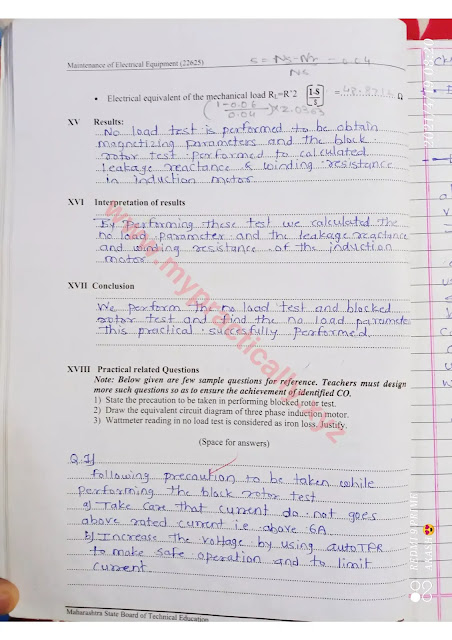 Maintenance of Electrical Equipment (22625)
S = Ns-Nr = 0.04
Ns
• Electrical equivalent of the mechanical load RL=R'2 [1-S/S] = 48.8712 Ω
(1-0.06/0.04) x 2.0363
XV Results:
No load test is performed to be obtain
magnetizing parameters and the block
rotor test performed to calculated
leakage reactance & winding resistance
in induction motor
XVI Interpretation of results
By performing these test we calculated the
no load parameter and the leakage reactance
and winding resistance of the induction
motor
XVII Conclusion
We perform the no load test and blocked
rotor test and find the no load parameter
This practical succesfully performed.
XVIII Practical related Questions
Note: Below given are few sample questions for reference. Teachers must design
more such questions so as to ensure the achievement of identified CO.
1) State the precaution to be taken in performing blocked rotor test.
2) Draw the equivalent circuit diagram of three phase induction motor.
3) Wattmeter reading in no load test is considered as iron loss. Justify.
(Space for answers)
Q.1]
following precaution to be taken while
performing the block rotor test
a) Take care that current do not goes
above rated current i.e above 6A
b) Increase the voltage by using auto TPR
to make safe operation and to limit
current
Maharashtra State Board of Technical Education
www.mypractically.xyz
REDMI 9 PRIME
AKASH 😍